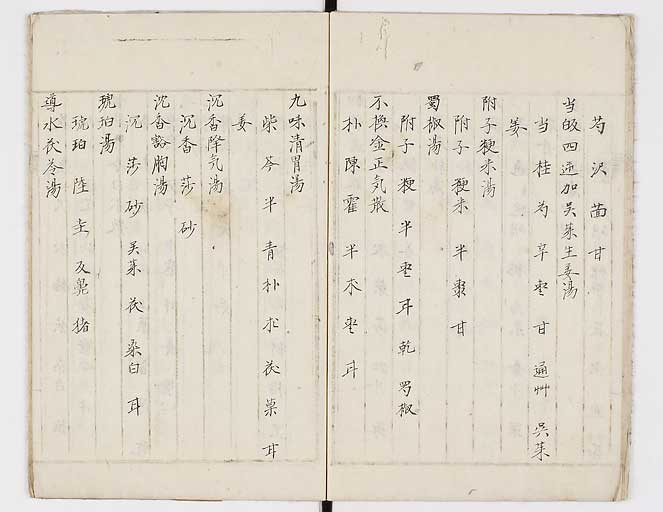 芍 沢 茴 甘
当皈四逆加吴茱生姜湯
当 桂 芍 早 枣 甘 通艸 吴茱
姜
附子粳米湯
附子 粳米 半 枣 甘
蜀椒湯
附子 粳 半 枣 甘 乾 蜀椒
不換金正気散
朴 陳 霍 半 朮 枣 甘
九味清胃湯
柴 芩 半 青 朴 朮 茯 菓 甘
姜
沉香降気湯
沉香 莎 砂
沉香豁胸湯
沉 莎 砂 吴茱 茯 桑白 甘
琥珀湯
琥珀 猪
導水茯苓湯